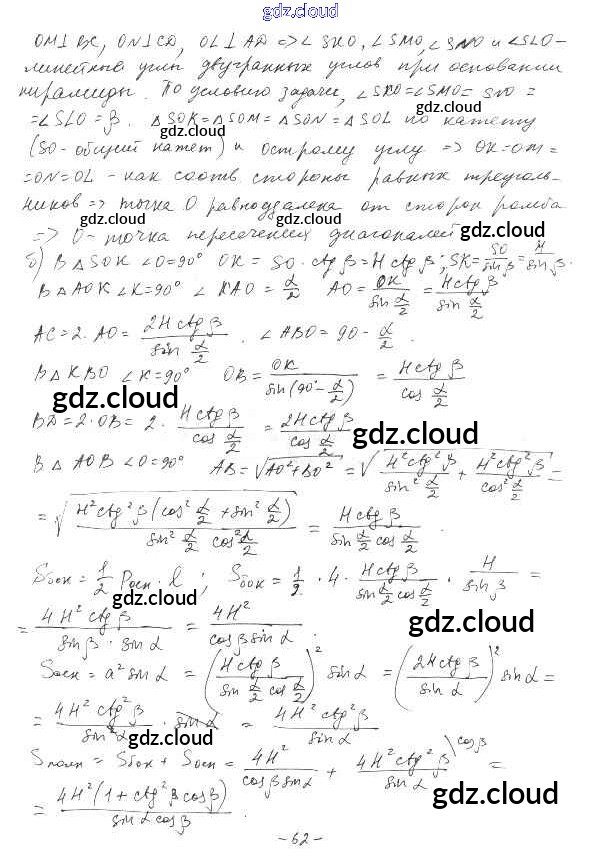 gdz.cloud
OM⊥BC, ON⊥CD, OL⊥AD => ∠SKO, ∠SMO, ∠SNO и ∠SLO-
линейные углы двугранных углов при основании
пирамиды. По условию задачи, ∠SKO=∠SMO=SNO=
gdz.cloud
=∠SLO=β. △SOK=△SOM=△SON=△SOL по катету
gdz.cloud
(SO-общий катет) и острому углу => OK=OM=
=ON=OL - как соотв. стороны равных треуголь-
ников => точка O равноудалена от сторон ромба
gdz.cloud
=> O-точка пересечения диагоналей.
gdz.cloud
б) В △SOK ∠O=90° OK = SO·ctg β = H ctg β; SK = SO/sin β = H/sin β.
В △AOK ∠K=90° ∠KAO = α/2 AO = OK/sin α/2 = H ctg β/sin α/2
AC=2·AO = 2H ctg β/sin α/2. ∠ABO = 90 - α/2.
В △KBO ∠K=90° OB = OK/sin(90°-α/2) = H ctg β/cos α/2
gdz.cloud
BD=2·OB = 2· H ctg β/cos α/2 = 2H ctg β/cos α/2
gdz.cloud
В △AOB ∠O=90° AB = √(AO²+BO²) = √(H² ctg² β/sin² α/2 + H² ctg² β/cos² α/2) =
= √(H² ctg² β (cos² α/2 + sin² α/2)/sin² α/2 cos² α/2) = H ctg β/sin α/2 cos α/2.
gdz.cloud
Sбок = 1/2 Pосн · l; Sбок = 1/2 · 4 · H ctg β/sin α/2 cos α/2 · H/sin β =
gdz.cloud
= 4H² ctg β/sin β · sin α = 4H²/cos β sin α.
gdz.cloud
Sосн = a² sin α = (H ctg β/sin α/2 cos α/2)² sin α = (2H ctg β/sin α)² sin α =
gdz.cloud
= 4H² ctg² β/sin² α · sin α = 4H² ctg² β/sin α
gdz.cloud
Sполн = Sбок + Sосн = 4H²/cos β sin α + 4H² ctg² β/sin α \cos β =
gdz.cloud
= 4H²(1+ctg² β cos β)/sin α cos β.
gdz.cloud
-62-